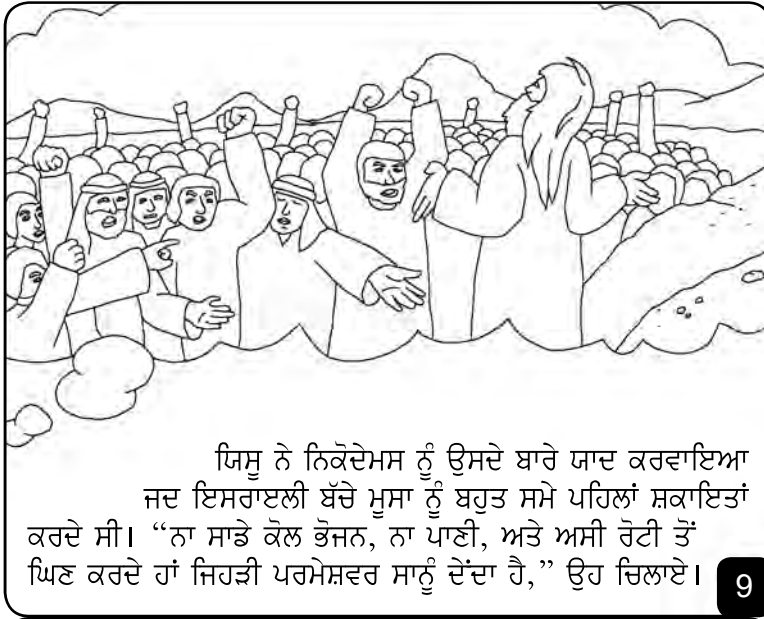 ਯਿਸੂ ਨੇ ਨਿਕੋਦੇਮਸ ਨੂੰ ਉਸਦੇ ਬਾਰੇ ਯਾਦ ਕਰਵਾਇਆ
ਜਦ ਇਸਰਾਏਲੀ ਬੱਚੇ ਮੂਸਾ ਨੂੰ ਬਹੁਤ ਸਮੇ ਪਹਿਲਾਂ ਸ਼ਕਾਇਤਾਂ
ਕਰਦੇ ਸੀ। “ਨਾ ਸਾਡੇ ਕੋਲ ਭੋਜਨ, ਨਾ ਪਾਣੀ, ਅਤੇ ਅਸੀ ਰੋਟੀ ਤੋਂ
ਘਿਣ ਕਰਦੇ ਹਾਂ ਜਿਹੜੀ ਪਰਮੇਸ਼ਵਰ ਸਾਨੂੰ ਦੇਂਦਾ ਹੈ,” ਉਹ ਚਿਲਾਏ।
9